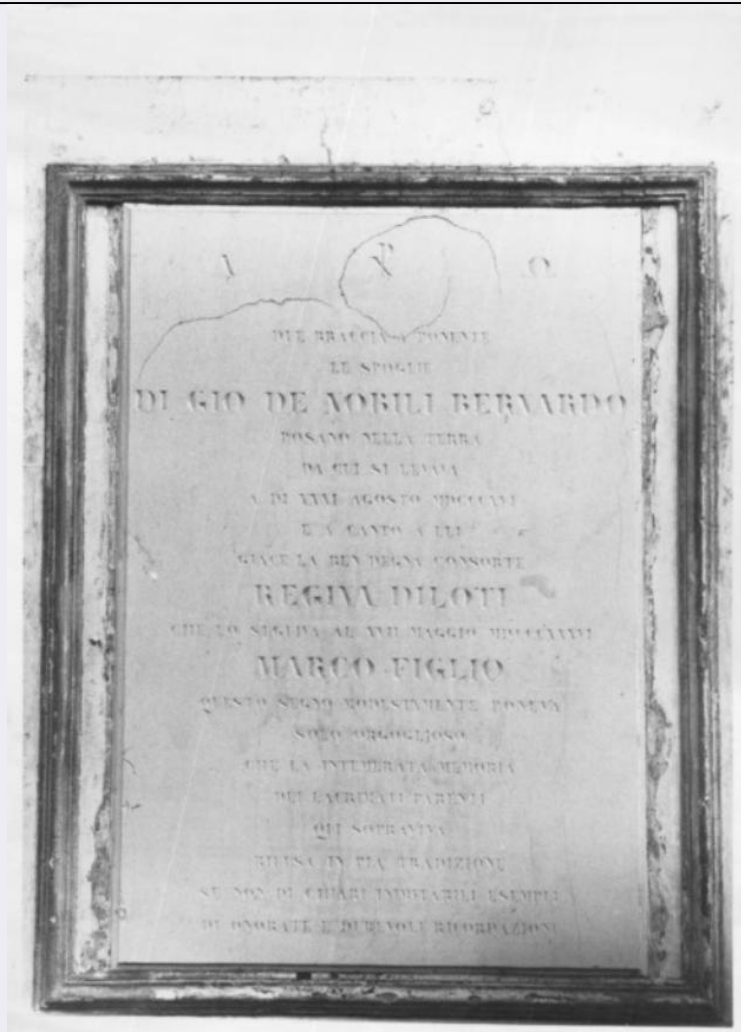 A ☧ Ω
DUE BRACCIA A PONENTE
LE SPOGLIE
DI GIO DE NOBILI BERNARDO
POSANO NELLA TERRA
DA CUI SI LEVAVA
A DI XXXI AGOSTO
E A CANTO A LUI
GIACE LA BEN DEGNA CONSORTE
REGINA DILOTI
CHE LO SEGUIVA AL XVII MAGGIO
MARCO FIGLIO
QUESTO SEGNO MODESTAMENTE PONEVA
SOLO ORGOGLIOSO
CHE LA INTEMERATA MEMORIA
DEI LACRIMATI PARENTI
QUI SOPRAVIVA
IN PIA TRADIZIONE
SE NON DI CHIARI IMMUTABILI ESEMPLI
DI ONORATE E DUREVOLI RICORDAZIONI